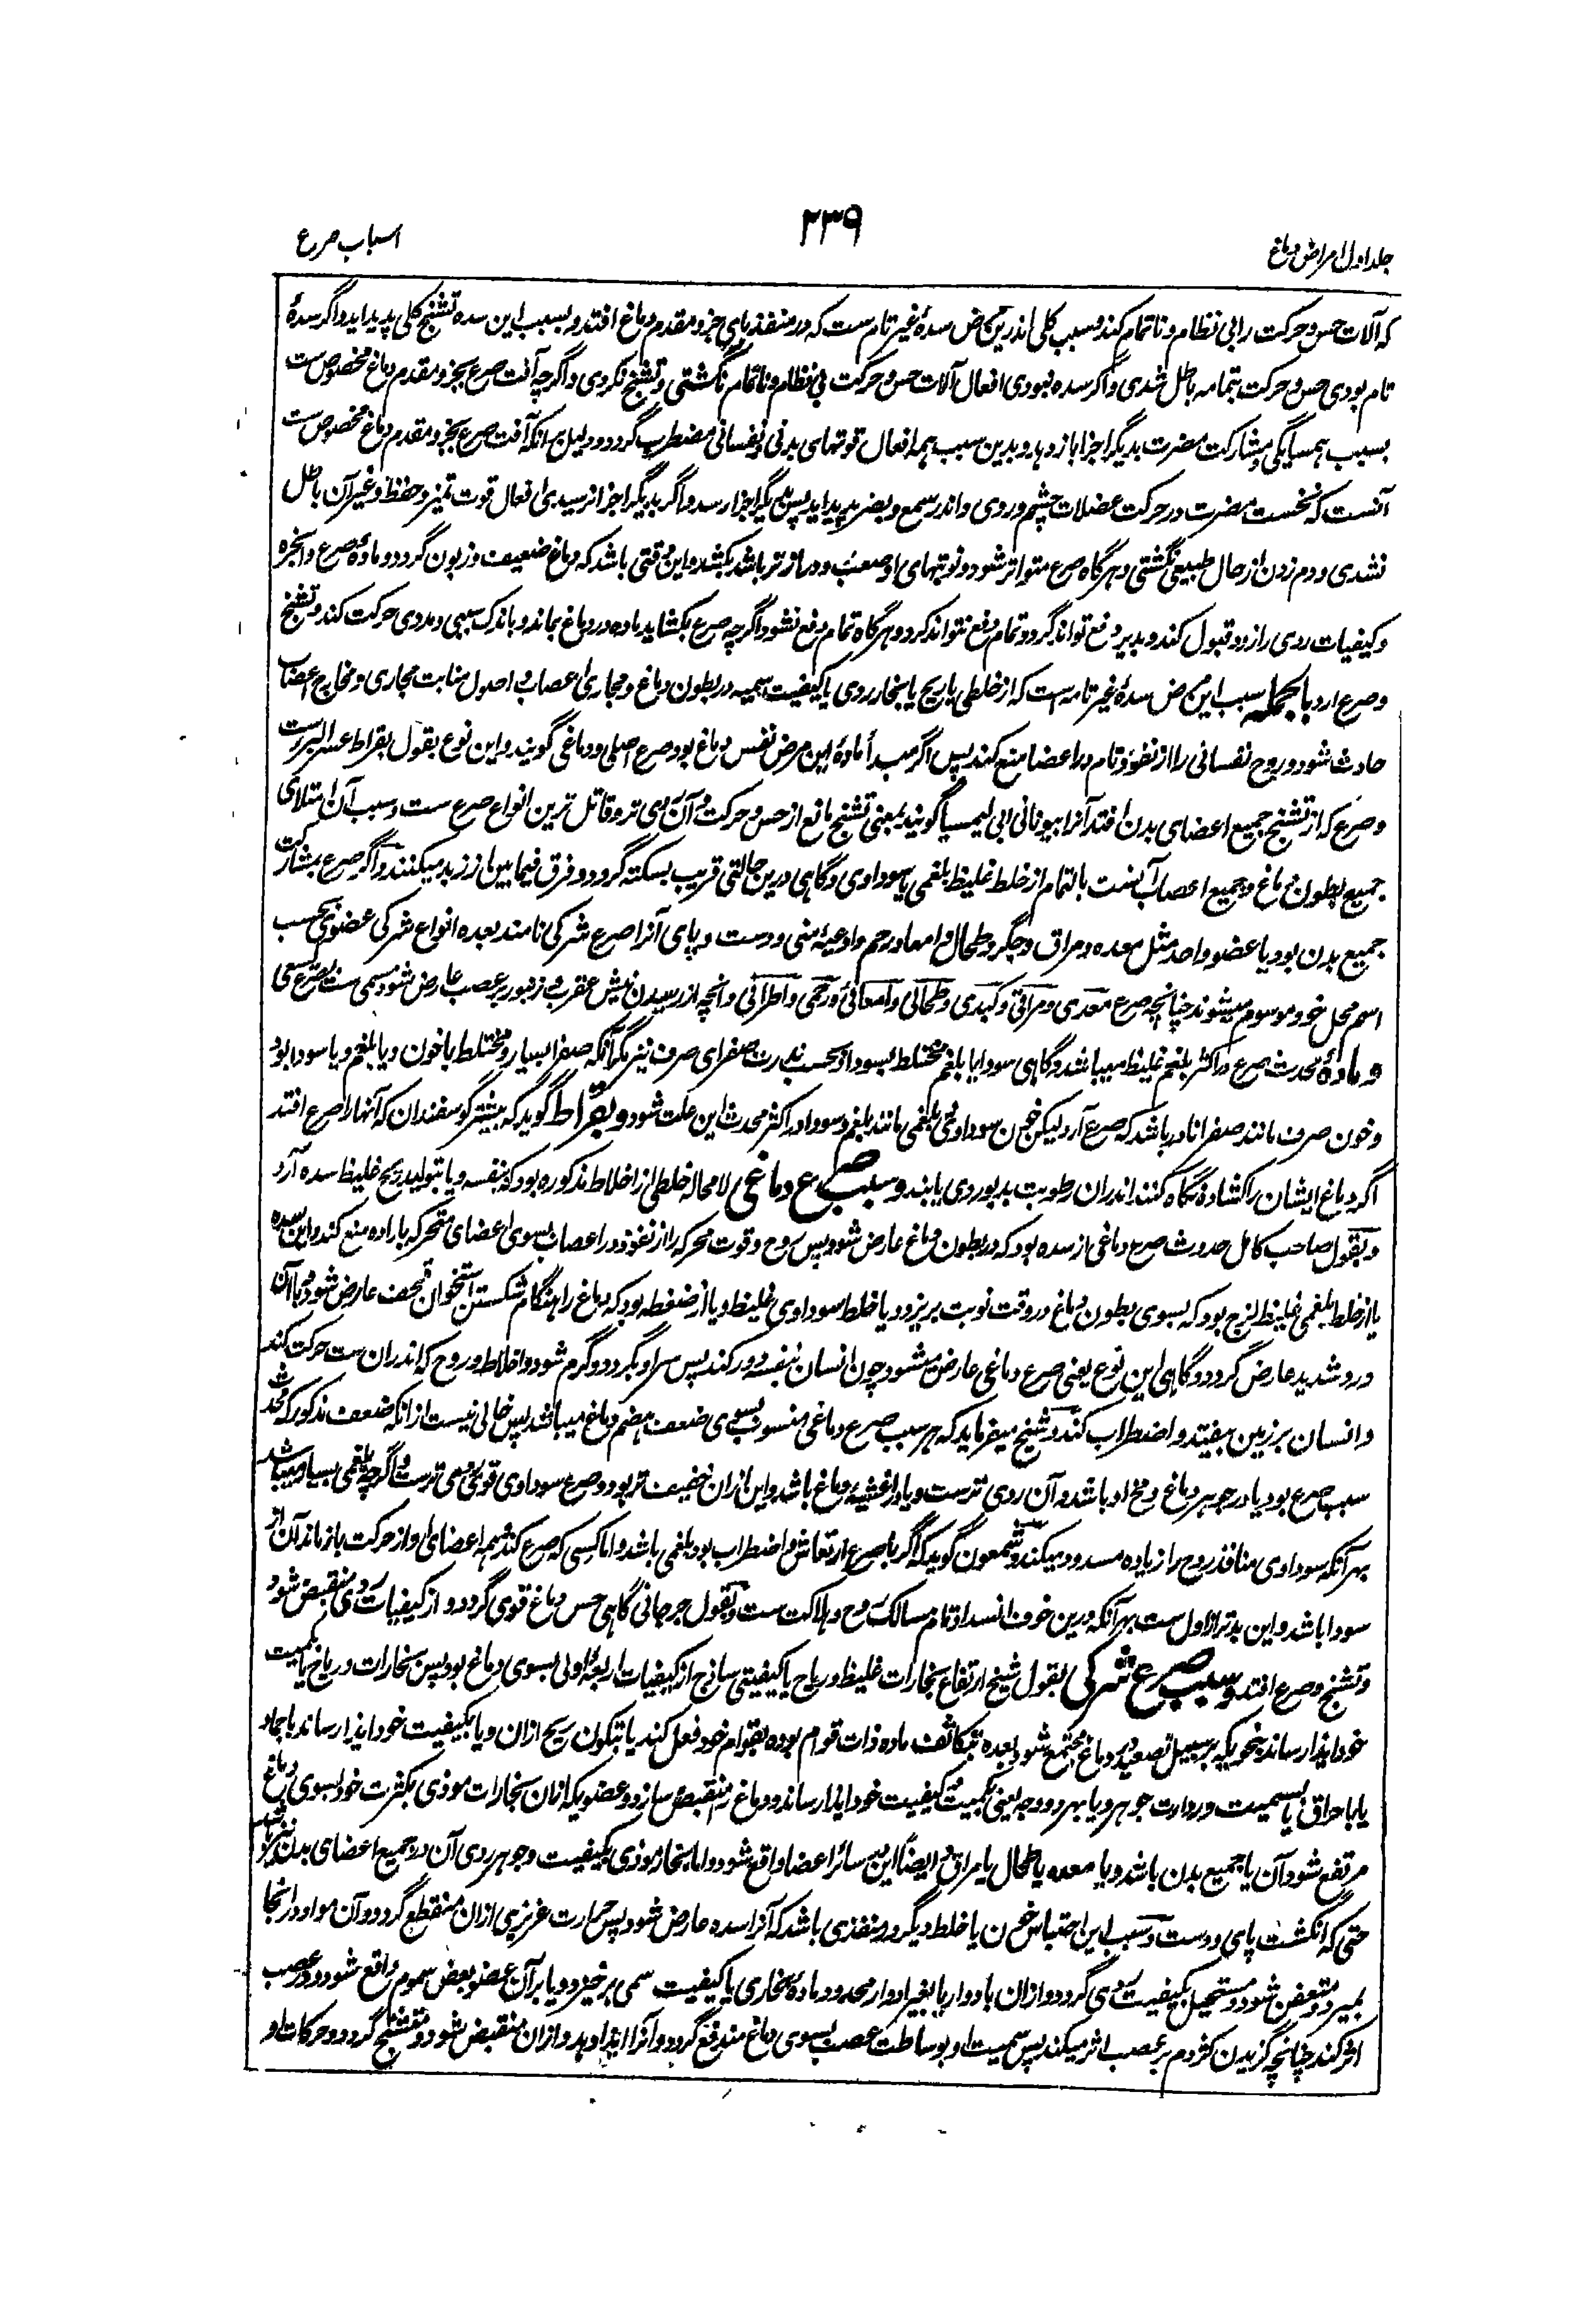 جلد اول امراض دماغ
۲۳۹
اسباب صرع
که آلات حس و حرکت را بی نظام و ناتمام کند و سبب کلی اندرین مرض سدهٔ غیر تام ست که در منفذهای جزو مقدم دماغ افتد و بسبب این سده تشنج کلی پدید اید و اگر سدهٔ
تام بودی حس و حرکت بتمامه باطل شدی و اگر سده نبودی افعال آلات حس و حرکت بی نظام و ناتمام نگشتی و تشنج نکردی و اگرچه آفت صرع بجزو مقدم دماغ مخصوص ست
بسبب همسایگی و مشارکت مضرت بدیگر اجزا باز دهد و بدین سبب همه افعال قوتهای بدنی و نفسانی مضطرب گردد و دلیل بر انکه آفت صرع بجزو مقدم دماغ مخصوص ست
آنست که نخست مضرت در حرکت عضلات چشم و روی و اندر سمع و بصر پدید اید پس بدیگر اجزا رسد و اگر بدیگر اجزا نرسیدی افعال قوت تمیز و حفظ و غیر آن باطل
نشدی و دم زدن از حال طبیعی نگشتی و هرگاه صرع متواتر شود و نوبتهای او صعب و دراز تر باشد بکشد و این وقتی باشد که دماغ ضعیف و زبون گردد و مادهٔ صرع و ابخره
و کیفیات ردی را زود قبول کند و بدیر دفع تواند کرد و تمام دفع نتواند کرد و هرگاه تمام دفع نشود اگرچه صرع بکشاید ماده در دماغ بماند و باندک سببی و مددی حرکت کند و تشنج
و صرع ارد بالجمله سبب این مرض سدهٔ غیر تامه است که از خلطی یا ریح یا بخار ردی یا کیفیت سمیه در بطون دماغ و مجاری اعصاب و اصول منابت مجاری و مخارج اعصاب
حادث شود و روح نفسانی را از نفوذ تام در اعضا منع کند پس اگر مبدأ مادهٔ این مرض نفس دماغ بود صرع اصلی و دماغی گویند و این نوع بقول بقراط عسر البرء ست
و صرع که از تشنج جمیع اعضای بدن افتد آنرا بیونانی ابی لیمسیا گویند بمعنی تشنج مانع از حس و حرکت و آن ردی تر و قاتل ترین انواع صرع ست و سبب آن امتلای
جمیع بطون دماغ و جمیع اعصاب آنست بالتمام از خلط غلیظ بلغمی یا سوداوی و گاهی درین حالتی قریب بسکته گردد و فرق فیما بین از زبد میکنند و اگر صرع بشارکت
جمیع بدن بود یا عضو واحد مثل معده و مراق و جگر و طحال و امعا و رحم و اوعیهٔ منی و دست و پای آنرا صرع شرکی نامند بعده انواع شرکی عضوی بحسب
اسم محل خود موسوم میشوند چنانچه صرع معدی و مراقی و کبدی و طحالی و امعائی و رحمی و اطرافی و انچه از رسیدن نیش عقرب و زنبور بر عصب عارض شود مسمی ست بصرع لسعی
و مادهٔ محدث صرع در اکثر بلغم غلیظ میباشد و گاهی سودا یا بلغم مختلط بسودا و بحسب ندرت صفرای صرف نیز مگر آنکه صفرا بسیار و مختلط باخون و یا بلغم و یا سودا بود
و خون صرف مانند صفرا نادر باشد که صرع آرد لیکن خون سوداوی و بلغمی مانند بلغم و سودا در اکثر محدث این علت شود و بقراط گوید که بیشتر گوسفندان که آنها را صرع افتد
اگر دماغ ایشان را کشاده نگاه کنند اندران رطوبت بدبو ردی یابند و سبب صرع دماغی لا محاله خلطی از اخلاط مذکوره بود که بنفسه و یا بتولید ریح غلیظ سده آرد
و بقول صاحب کامل حدوث صرع دماغی از سده بود که در بطون دماغ عارض شود پس روح و قوت محرکه را از نفوذ در اعصاب بسوی اعضای متحرکه باراده منع کند و این سده
یا از خلط بلغمی غلیظ لزج بود که بسوی بطون دماغ در وقت نوبت بریزد و یا خلط سوداوی غلیظ و یا از ضغطه بود که دماغ را هنگام شکستن استخوان قحف عارض شود و با آن
درد شدید عارض گردد و گاهی این نوع یعنی صرع دماغی عارض میشود چون انسان بنفسه دور کند پس سر او بگردد و گرم شود و اخلاط و روح که اندران ست حرکت کند
و انسان بر زمین بیفتد و اضطراب کند و شیخ میفرماید که هر سبب صرع دماغی منسوب بسوی ضعف هضم دماغ میباشد پس خالی نیست از انکه ضعف مذکور که محدث
سبب صرع بود یا در جوهر دماغ و مخ او باشد و آن ردی ترست و یا در اغشیهٔ دماغ باشد و این ازان خفیف تر بود و صرع سوداوی قوی و ردی ترست و اگرچه بلغمی بسیار میباشد
بهر آنکه سوداوی منافذ روح را زیاده مسدود میکند و شمعون گوید که اگر با صرع ارتعاش و اضطراب بود بلغمی باشد و اما کسی که صرع کند و همه اعضای او از حرکت باز ماند آن از
سودا باشد و این بدتر از اول ست بهر آنکه درین خوف انسداد تام مسالک روح و هلاکت ست و بقول جرجانی گاهی حس دماغ قوی گردد و از کیفیات ردی منقبض شود
و تشنج و صرع افتد و سبب صرع شرکی بقول شیخ ارتفاع بخارات غلیظ و ریاح یا کیفیتی ساذج از کیفیات اربعهٔ اولی بسوی دماغ بود پس بخارات و ریاح یا بکمیت
خود ایذا رساند بنحویکه بر سبیل تصعید در دماغ مجتمع شود بعده بتکاثف ماده ذات قوام بوده بقوام خود فعل کند یا بتکون ریح ازان و یا بکیفیت خود ایذا رساند باجماد
یا باحراق یا بسمیت و رداءت جوهر و یا بهر دو وجه یعنی بکمیت و کیفیت خود ایذا رساند و دماغ را منقبض سازد و عضویکه ازان بخارات موذی بکثرت خود بسوی دماغ
مرتفع شود آن یا جمیع بدن باشد و یا معده یا طحال یا مراق و ایضاً این در سائر اعضا واقع شود و اما بخار موذی بکیفیت و جوهر ردی آن در جمیع اعضای بدن نیز باشد
حتی که انگشت پای و دست و سبب این احتباس خون یا خلط دیگر در منفذی باشد که آنرا سده عارض شود پس حرارت غریزی ازان منقطع گردد و آن مواد در انجا
بمیرد و متعفن شود و مستحیل بکیفیت ردی گردد و ازان بادوار یا بغیر ادوار محدود مادهٔ بخاری یا کیفیت سمی برخیزد و یا بر آن عضو بعض سموم واقع شود و در عصب
اثر کند چنانچه گزیدن کژدم بر عصب اثر میکند پس سمیت او بوساطت عصب بسوی دماغ مندفع گردد و آنرا ایذا دهد و ازان منقبض شود و متشنج گردد و حرکات او